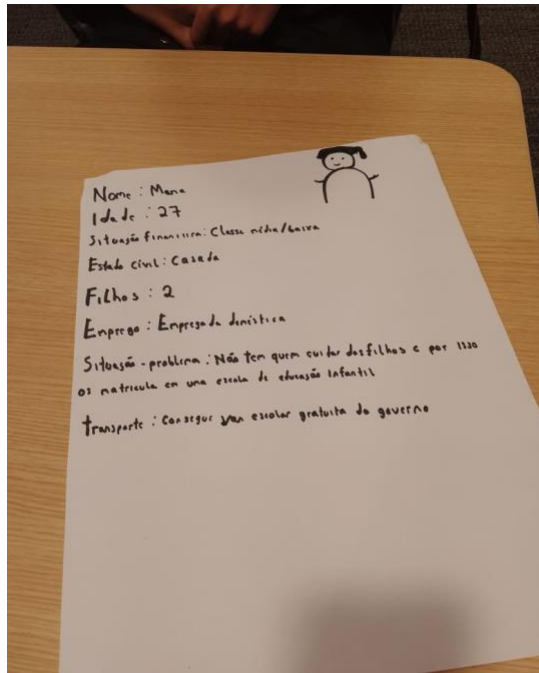 Nome : Maria
Idade : 27
Situação financeira: Classe média/baixa
Estado civil: Casada
Filhos : 2
Emprego : Empregada doméstica
Situação - problema : Não tem quem cuidar dos filhos e por isso
os matricula em uma escola de educação infantil
Transporte : Consegue van escolar gratuita do governo